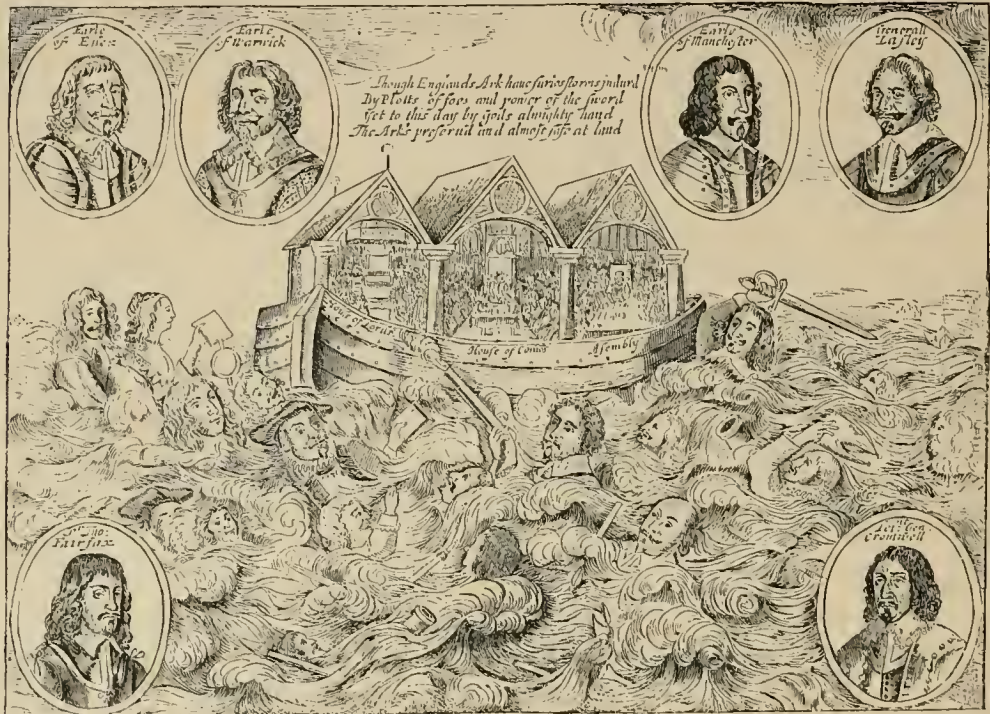 Earle
of Essex
Earle
of Warwick
Though Englands Ark have furios storms indurd
By Plotts of foes and power of the sword
Yet to this day by gods almighty hand
The Ark's preserv'd and almost safe at land
Earle
of Manchester
Generall
Lesley
House of Lords
House of Comõs
Assembly
Sr Tho:
Fairfax
Lieu Gen
Cromwell